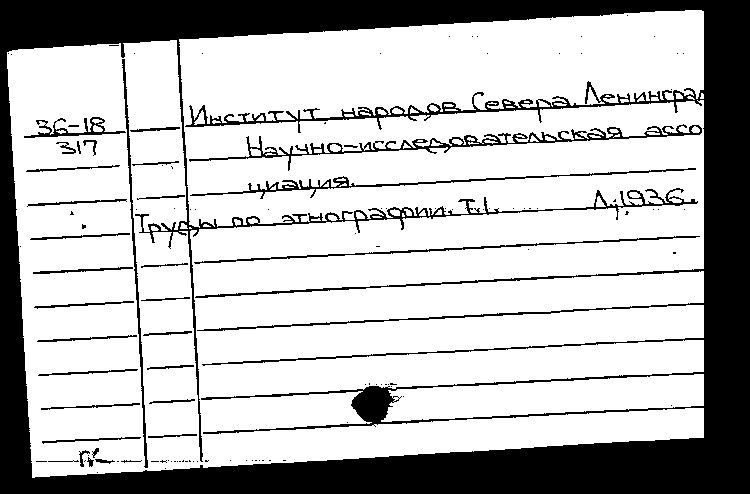 36-18
317
Институт народов Севера. Ленинград
Научно-исследовательская ассо
циация.
Труды по этнографии. Т.1. Л.,1936.